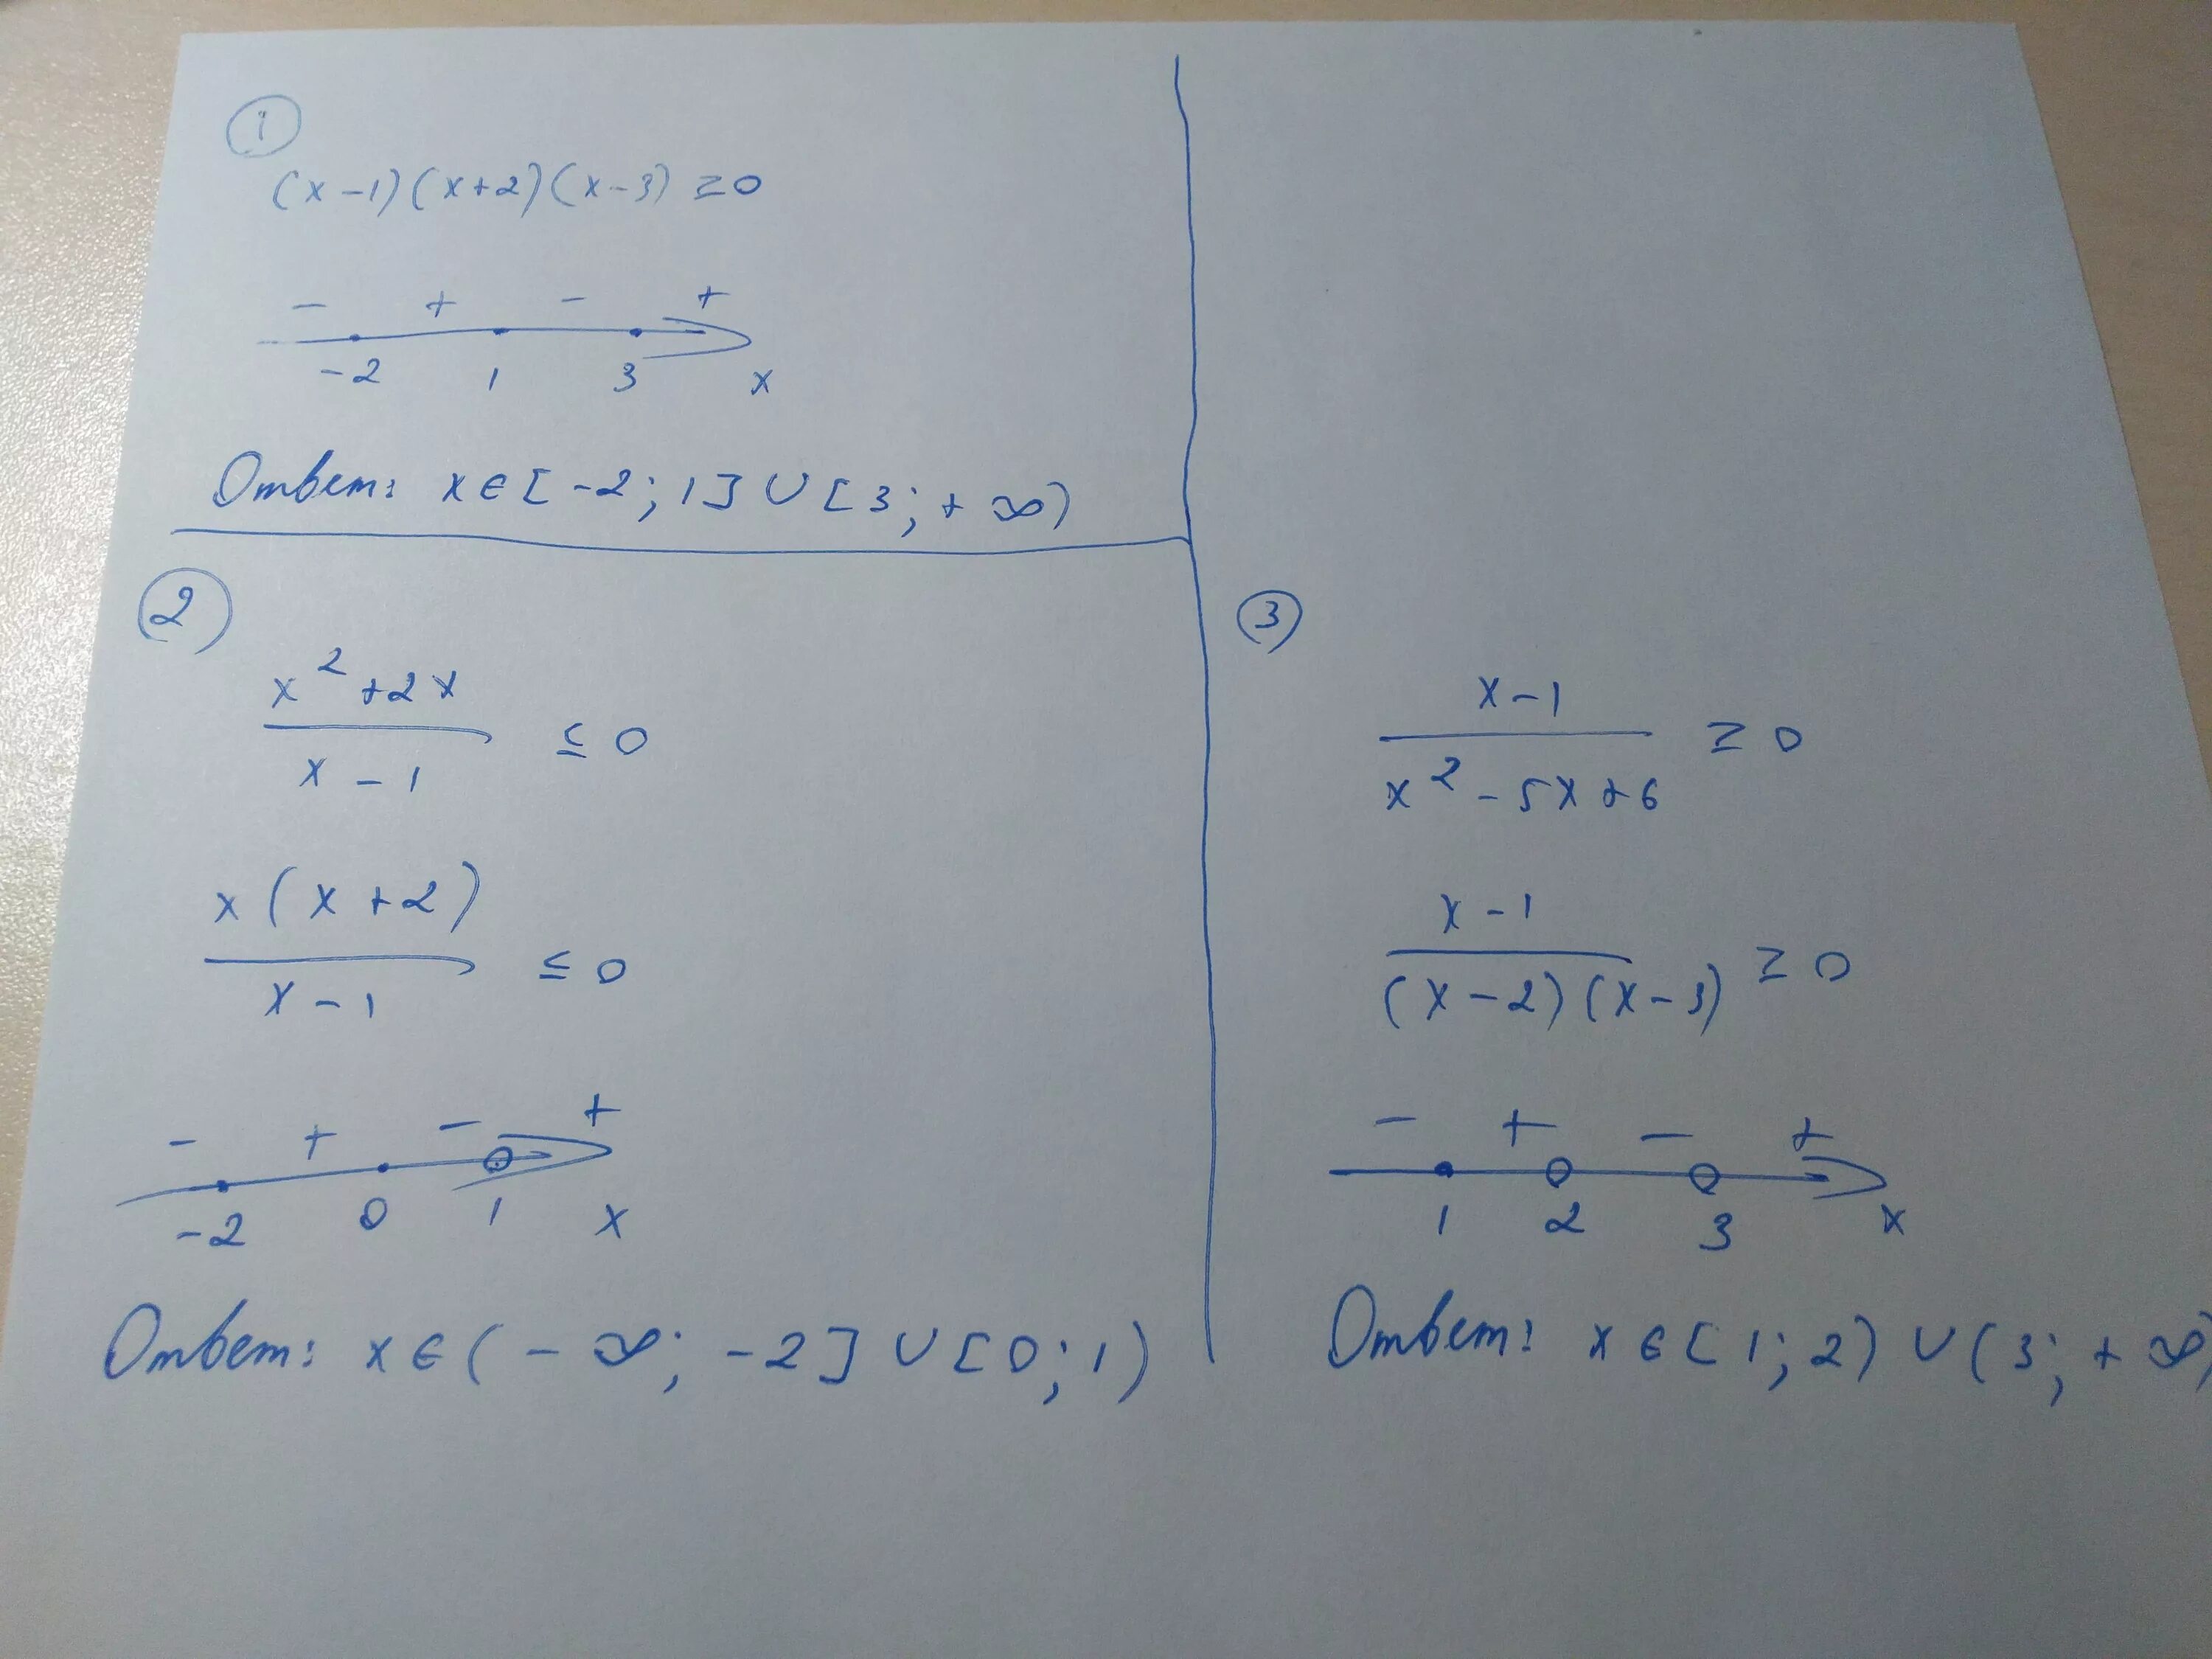 1
(x-1)(x+2)(x-3) ≥0
- + - +
-2 1 3 x
Ответ: x∈[-2; 1]∪[3; +∞)
2
x²+2x
x - 1
≤ 0
x(x+2)
x-1
≤ 0
- + - +
-2 0 1 x
Ответ: x∈(-∞; -2]∪[0; 1)
3
x-1
x²-5x+6
≥ 0
x-1
(x-2)(x-3)
≥ 0
- + - +
1 2 3 x
Ответ: x∈[1; 2)∪(3; +∞)